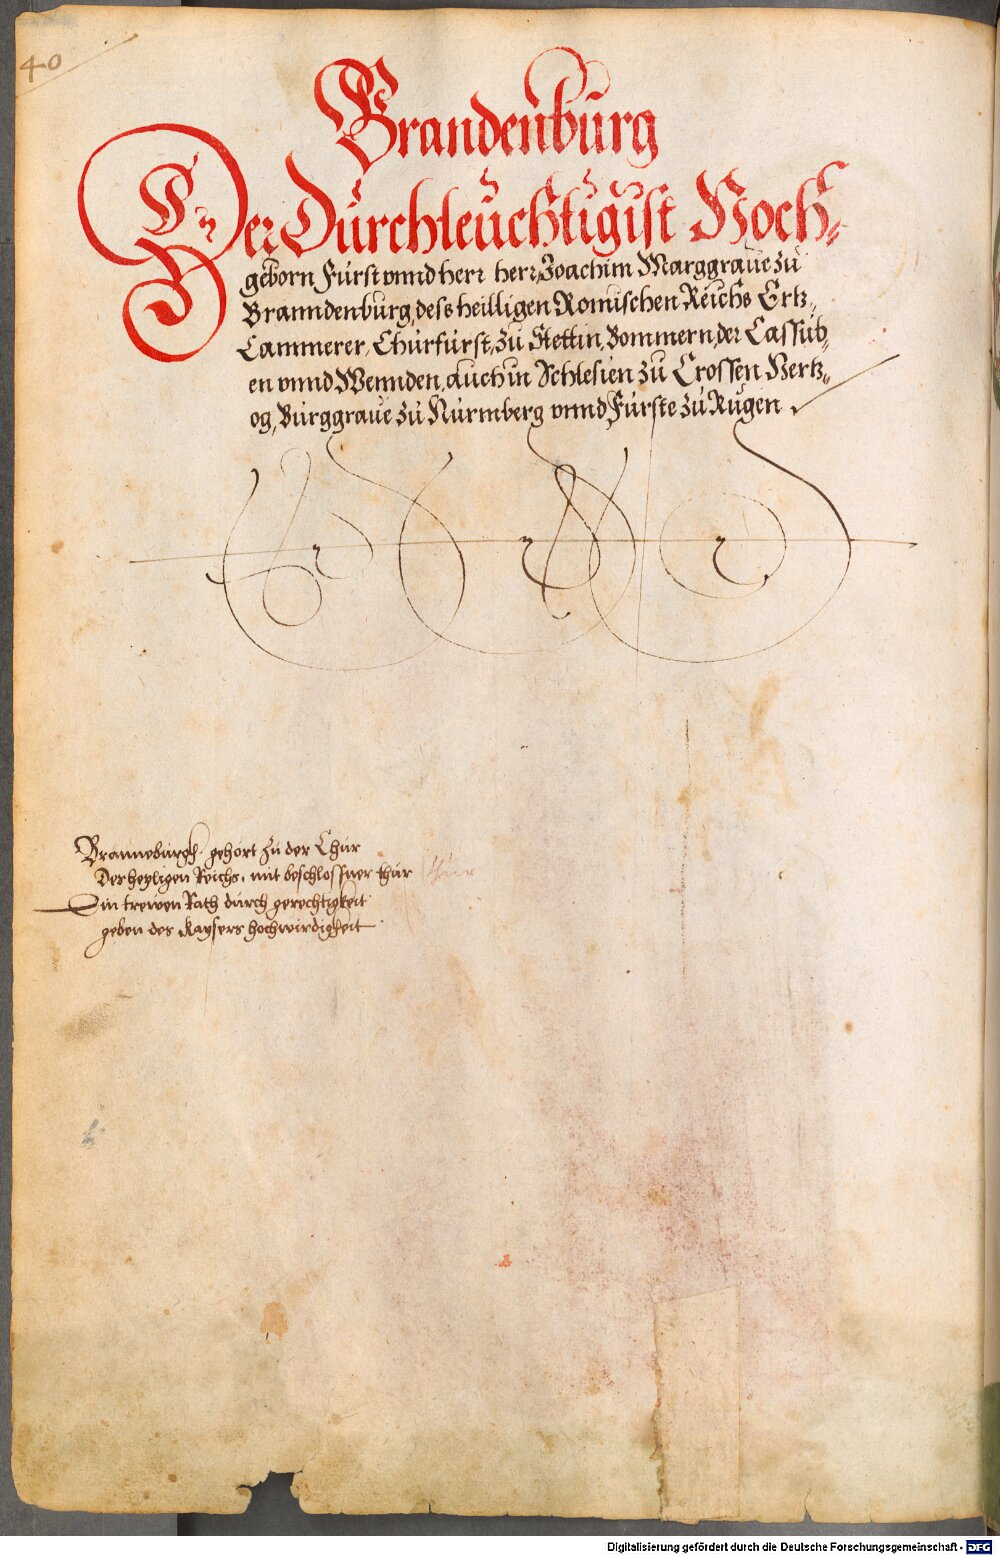 40
Brandenbürg
Der Dürchleüchtigist Hoch-
geborn Fürst vnnd herr herr, Joachim Marggraue zü
Branndenbürg, dess heilligen Romischen Reichs Ertz-
Cammerer, Chürfürst, zü Stettin, Bommern, der Cassüb-
en vnnd Wennden, aüch in Schlesien zü Crossen Hertz-
og, Bürggraue zü Nürmberg vnnd Fürste zü Rügen
Branneburgh gehort zü der Chür
Des heyligen Reichs, mit beschlossner thür
Ein trewen Rath dürch gerechtigkeit
geben des Kaysers hochwirdigheit
Digitalisierung gefördert durch die Deutsche Forschungsgemeinschaft - DFG